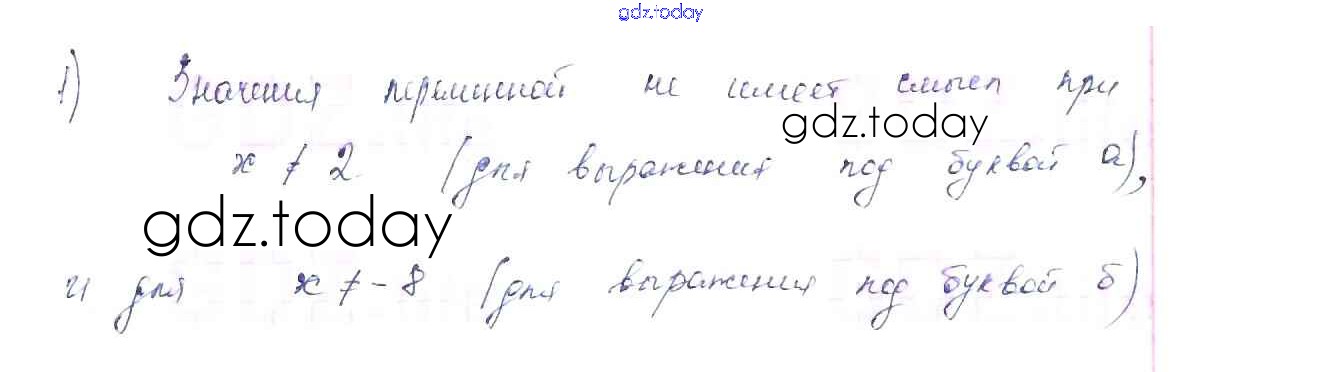 gdz.today
1) Значения переменной не имеет смысл при
gdz.today
x ≠ 2 (для выражения под буквой а),
gdz.today
и для x ≠ -8 (для выражения под буквой б)